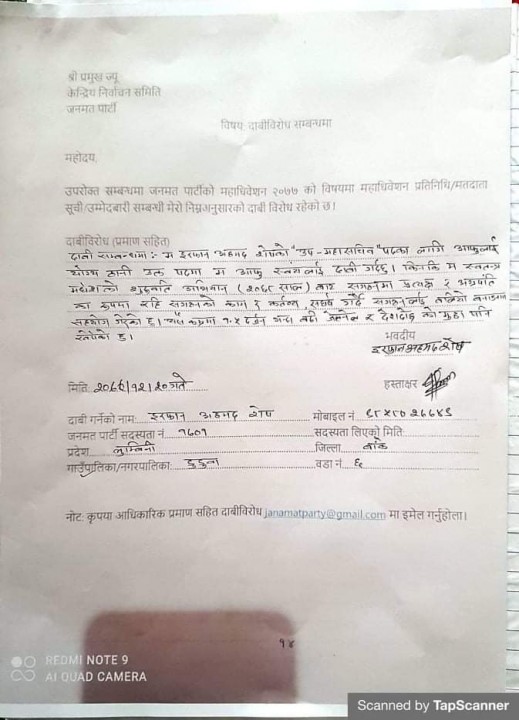 श्री प्रमुख ज्यू
केन्द्रिय निर्वाचन समिति
जनमत पार्टी
विषय: दाबीविरोध सम्बन्धमा
महोदय,
उपरोक्त सम्बन्धमा जनमत पार्टीको महाधिवेशन २०७७ को विषयमा महाधिवेशन प्रतिनिधि/मतदाता
सूची/उम्मेदबारी सम्बन्धी मेरो निम्नअनुसारको दाबी विरोध रहेको छ।
दाबीविरोध (प्रमाण सहित)
दाबी सम्बन्धमाः म इरफान अहमद शेषको "उप-महासचिव" पदका लागि आफुलाई
योग्य ठानी उक्त पदमा म आफु स्वयंलाई दाबी गर्दछु। किनकि म स्वतन्त्र
मधेशको शुरुवाति अभियान (२०६८ साल) बाट सगठनमा प्रत्यक्ष र
का रुपमा रहि सगठनको काम र कर्तव्य, गर्दै सगठनलाई बलियो बनाउनमा
सहयोग गरेको छु। दर्जन भन्दा बढी र को मुद्दा पनि
खेपेको छु।
भवदीय
इरफान अहमद शेष
मिति: २०७७/१२/२० गते
हस्ताक्षर
दाबी गर्नेको नाम: इरफान अहमद शेष मोबाइल नं. ९८५८०२६६४९
जनमत पार्टी सदस्यता नं. १६०१ सदस्यता लिएको मिति:
प्रदेश लुम्बिनी जिल्ला बाँके
गाउँपालिका/नगरपालिका: डुडुवा वडा नं. ६
नोट: कृपया आधिकारिक प्रमाण सहित दाबीविरोध janamatparty@gmail.com मा इमेल गर्नुहोला।
१४
REDMI NOTE 9
AI QUAD CAMERA
Scanned by TapScanner